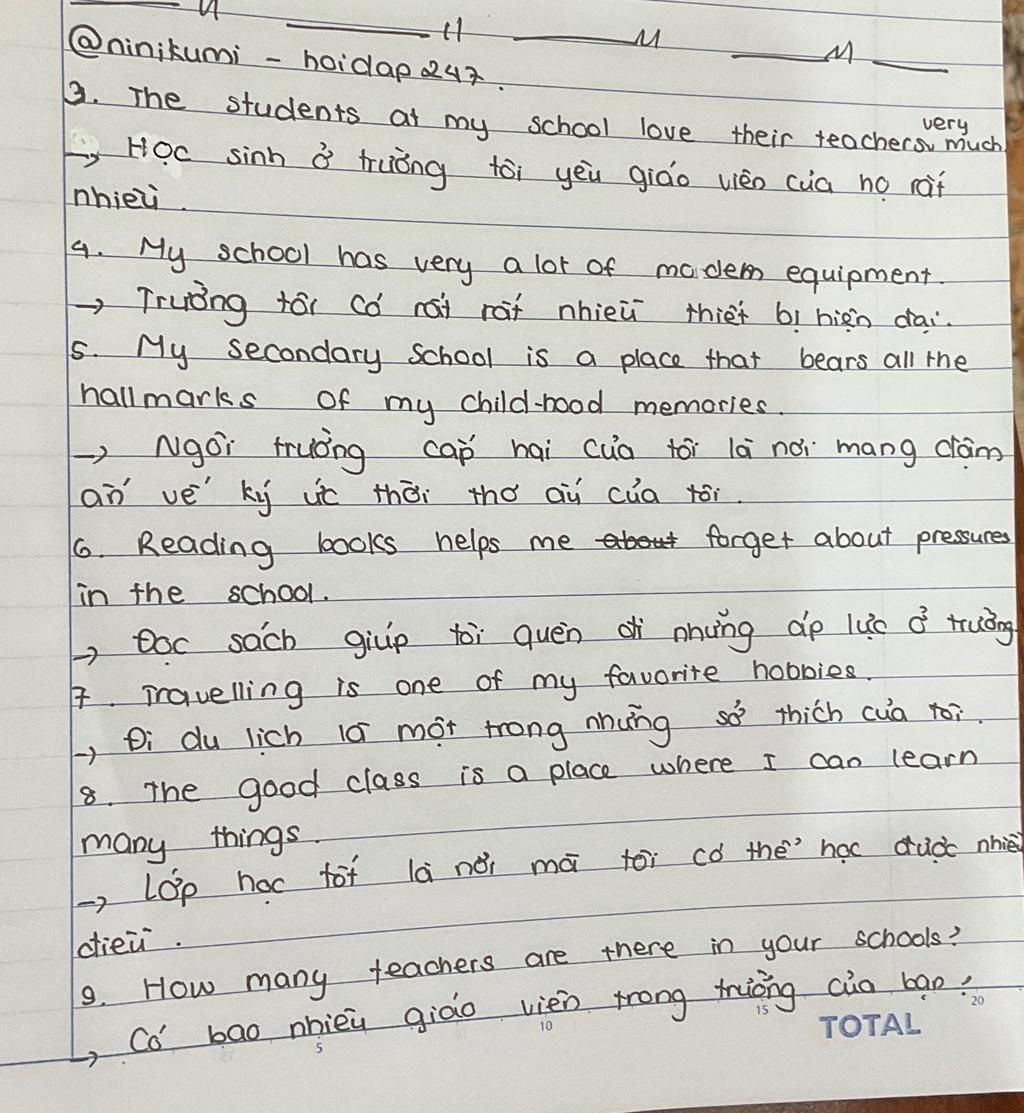 @ninikumi - hoidap247.
3. The students at my school love their teachers very much
→ Học sinh ở trường tôi yêu giáo viên của họ rất
nhiều.
4. My school has very a lot of modern equipment.
→ Trường tôi có rất rất nhiều thiết bị hiện đại.
5. My secondary school is a place that bears all the
hallmarks of my child-hood memories.
→ Ngôi trường cấp hai của tôi là nơi mang đậm
ấn về ký ức thời thơ ấu của tôi.
6. Reading books helps me about forget about pressures
in the school.
→ Đọc sách giúp tôi quên đi những áp lực ở trường
7. Travelling is one of my favorite hobbies.
→ Đi du lịch là một trong những sở thích của tôi.
8. The good class is a place where I can learn
many things.
→ Lớp học tốt là nơi mà tôi có thể học được nhiều
điều.
9. How many teachers are there in your schools?
→ Có bao nhiêu giáo viên trong trường của bạn?
5 10 15 20
TOTAL